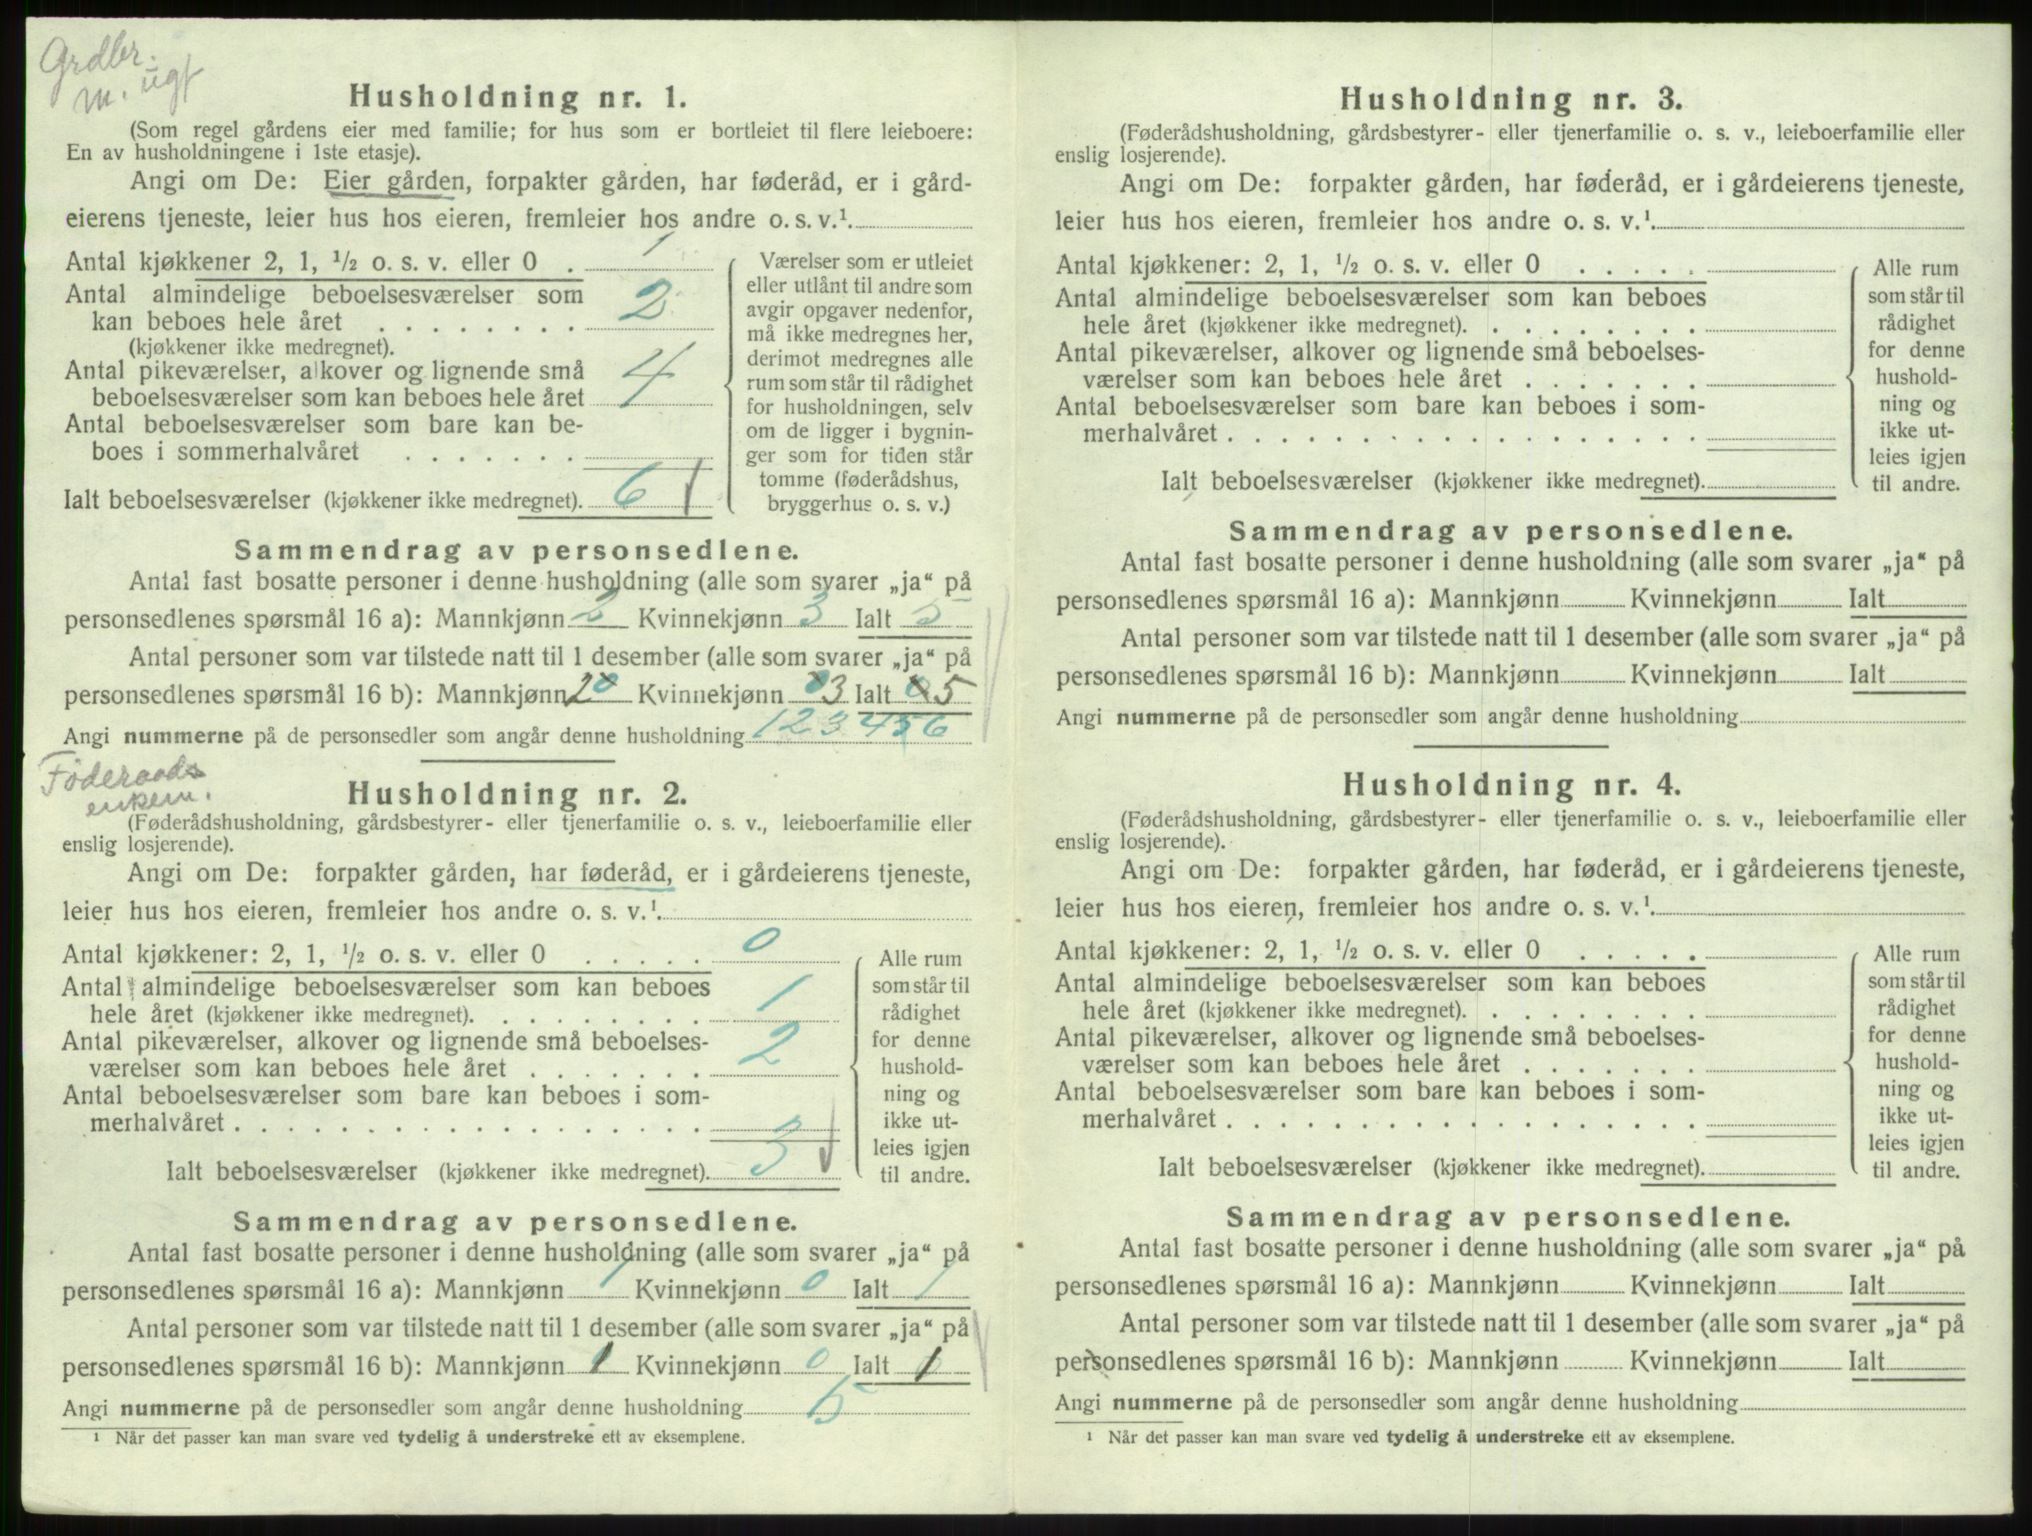 Grdbr.
m. ugt
Husholdning nr. 1.
(Som regel gårdens eier med familie; for hus som er bortleiet til flere leieboere:
En av husholdningene i 1ste etasje).
Angi om De: Eier gården, forpakter gården, har føderåd, er i gård-
eierens tjeneste, leier hus hos eieren, fremleier hos andre o. s. v.¹.
Antal kjøkkener 2, 1, ½ o. s. v. eller 0 . 1
Antal almindelige beboelsesværelser som
kan beboes hele året . . . . . . . . 2
(kjøkkener ikke medregnet).
Antal pikeværelser, alkover og lignende små
beboelsesværelser som kan beboes hele året 4
Antal beboelsesværelser som bare kan be-
boes i sommerhalvåret . . . . . . .
Ialt beboelsesværelser (kjøkkener ikke medregnet). 6
Værelser som er utleiet
eller utlånt til andre som
avgir opgaver nedenfor,
må ikke medregnes her,
derimot medregnes alle
rum som står til rådighet
for husholdningen, selv
om de ligger i bygnin-
ger som for tiden står
tomme (føderådshus,
bryggerhus o. s. v.)
Sammendrag av personsedlene.
Antal fast bosatte personer i denne husholdning (alle som svarer „ja“ på
personsedlenes spørsmål 16 a): Mannkjønn 2 Kvinnekjønn 3 Ialt 5
Antal personer som var tilstede natt til 1 desember (alle som svarer „ja“ på
personsedlenes spørsmål 16 b): Mannkjønn 2 0 Kvinnekjønn 0 3 Ialt 0 5
Angi nummerne på de personsedler som angår denne husholdning 1 2 3 4 5 6
Føderaads
enkem.
Husholdning nr. 2.
(Føderådshusholdning, gårdsbestyrer- eller tjenerfamilie o. s. v., leieboerfamilie eller
enslig losjerende).
Angi om De: forpakter gården, har føderåd, er i gårdeierens tjeneste,
leier hus hos eieren, fremleier hos andre o. s. v.¹.
Antal kjøkkener: 2, 1, ½ o. s. v. eller 0 . . . . . 0
Antal almindelige beboelsesværelser som kan beboes
hele året (kjøkkener ikke medregnet). . . . . . . . . 1
Antal pikeværelser, alkover og lignende små beboelses-
værelser som kan beboes hele året . . . . . . . 2
Antal beboelsesværelser som bare kan beboes i som-
merhalvåret . . . . . . . . . . . . . . . . . .
Ialt beboelsesværelser (kjøkkener ikke medregnet). 3
Alle rum
som står til
rådighet
for denne
hushold-
ning og
ikke ut-
leies igjen
til andre.
Sammendrag av personsedlene.
Antal fast bosatte personer i denne husholdning (alle som svarer „ja“ på
personsedlenes spørsmål 16 a): Mannkjønn 1 Kvinnekjønn 0 Ialt 1
Antal personer som var tilstede natt til 1 desember (alle som svarer „ja“ på
personsedlenes spørsmål 16 b): Mannkjønn 1 Kvinnekjønn 0 Ialt 1
Angi nummerne på de personsedler som angår denne husholdning 5
¹ Når det passer kan man svare ved tydelig å understreke ett av eksemplene.
Husholdning nr. 3.
(Føderådshusholdning, gårdsbestyrer- eller tjenerfamilie o. s. v., leieboerfamilie eller
enslig losjerende).
Angi om De: forpakter gården, har føderåd, er i gårdeierens tjeneste,
leier hus hos eieren, fremleier hos andre o. s. v.¹.
Antal kjøkkener: 2, 1, ½ o. s. v. eller 0 . . . . .
Antal almindelige beboelsesværelser som kan beboes
hele året (kjøkkener ikke medregnet). . . . . . . . .
Antal pikeværelser, alkover og lignende små beboelses-
værelser som kan beboes hele året . . . . . . .
Antal beboelsesværelser som bare kan beboes i som-
merhalvåret . . . . . . . . . . . . . . . . . .
Ialt beboelsesværelser (kjøkkener ikke medregnet).
Alle rum
som står til
rådighet
for denne
hushold-
ning og
ikke ut-
leies igjen
til andre.
Sammendrag av personsedlene.
Antal fast bosatte personer i denne husholdning (alle som svarer „ja“ på
personsedlenes spørsmål 16 a): Mannkjønn Kvinnekjønn Ialt
Antal personer som var tilstede natt til 1 desember (alle som svarer „ja“ på
personsedlenes spørsmål 16 b): Mannkjønn Kvinnekjønn Ialt
Angi nummerne på de personsedler som angår denne husholdning
Husholdning nr. 4.
(Føderådshusholdning, gårdsbestyrer- eller tjenerfamilie o. s. v., leieboerfamilie eller
enslig losjerende).
Angi om De: forpakter gården, har føderåd, er i gårdeierens tjeneste,
leier hus hos eieren, fremleier hos andre o. s. v.¹.
Antal kjøkkener: 2, 1, ½ o. s. v. eller 0 . . . . .
Antal almindelige beboelsesværelser som kan beboes
hele året (kjøkkener ikke medregnet). . . . . . . . .
Antal pikeværelser, alkover og lignende små beboelses-
værelser som kan beboes hele året . . . . . . .
Antal beboelsesværelser som bare kan beboes i som-
merhalvåret . . . . . . . . . . . . . . . . . .
Ialt beboelsesværelser (kjøkkener ikke medregnet).
Alle rum
som står til
rådighet
for denne
hushold-
ning og
ikke ut-
leies igjen
til andre.
Sammendrag av personsedlene.
Antal fast bosatte personer i denne husholdning (alle som svarer „ja“ på
personsedlenes spørsmål 16 a): Mannkjønn Kvinnekjønn Ialt
Antal personer som var tilstede natt til 1 desember (alle som svarer „ja“ på
personsedlenes spørsmål 16 b): Mannkjønn Kvinnekjønn Ialt
Angi nummerne på de personsedler som angår denne husholdning
¹ Når det passer kan man svare ved tydelig å understreke ett av eksemplene.